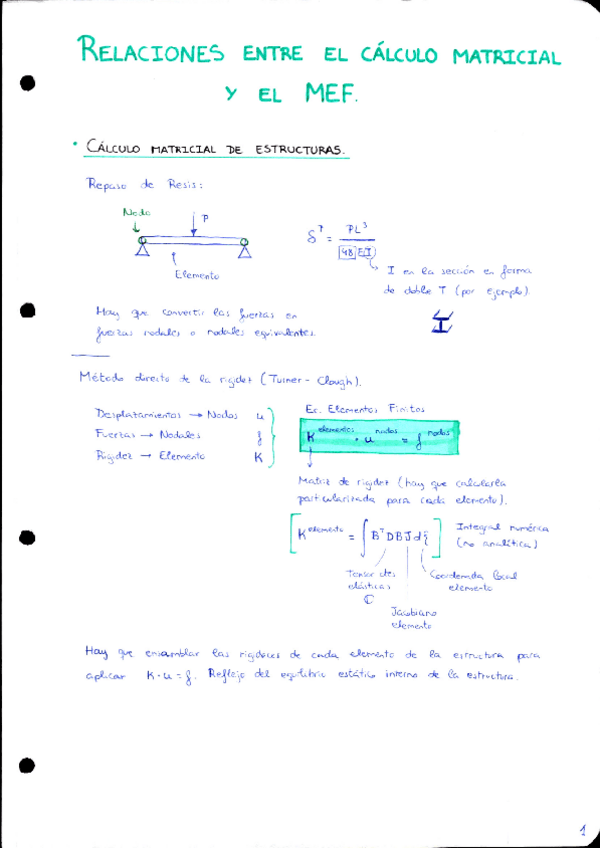 RELACIONES ENTRE EL CÁLCULO MATRICIAL
Y EL MEF.
• CÁLCULO MATRICIAL DE ESTRUCTURAS.
Repaso de Resis:
Nodo
P
Elemento
δ^T = PL³ / 48 EI
I en la sección en forma
de doble T (por ejemplo).
Hay que convertir las fuerzas en
fuerzas nodales o nodales equivalentes.
Método directo de la rigidez (Turner-Clough).
Desplazamientos → Nodos u
Fuerzas → Nodales f
Rigidez → Elemento K
Ec. Elementos Finitos
K^elementos · u^nodos = f^nodos
Matriz de rigidez (hay que calcularla
particularizada para cada elemento).
K^elemento = ∫ B^T D B J dξ
Integral numérica
(no analítica)
Tensor ctes
elásticas
Coordenada local
elemento
Jacobiano
elemento
Hay que ensamblar las rigideces de cada elemento de la estructura para
aplicar K·u = f. Reflejo del equilibrio estático interno de la estructura.
1